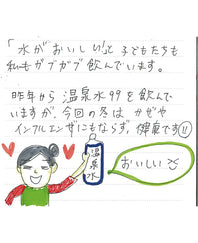 「水がおいしい!」と子どもたちも
私もガブガブ飲んでいます。
昨年から温泉水99を飲んで
いますが、今回の冬はカゼや
インフルエンザにもならず、健康です!!
温泉水
おいしい